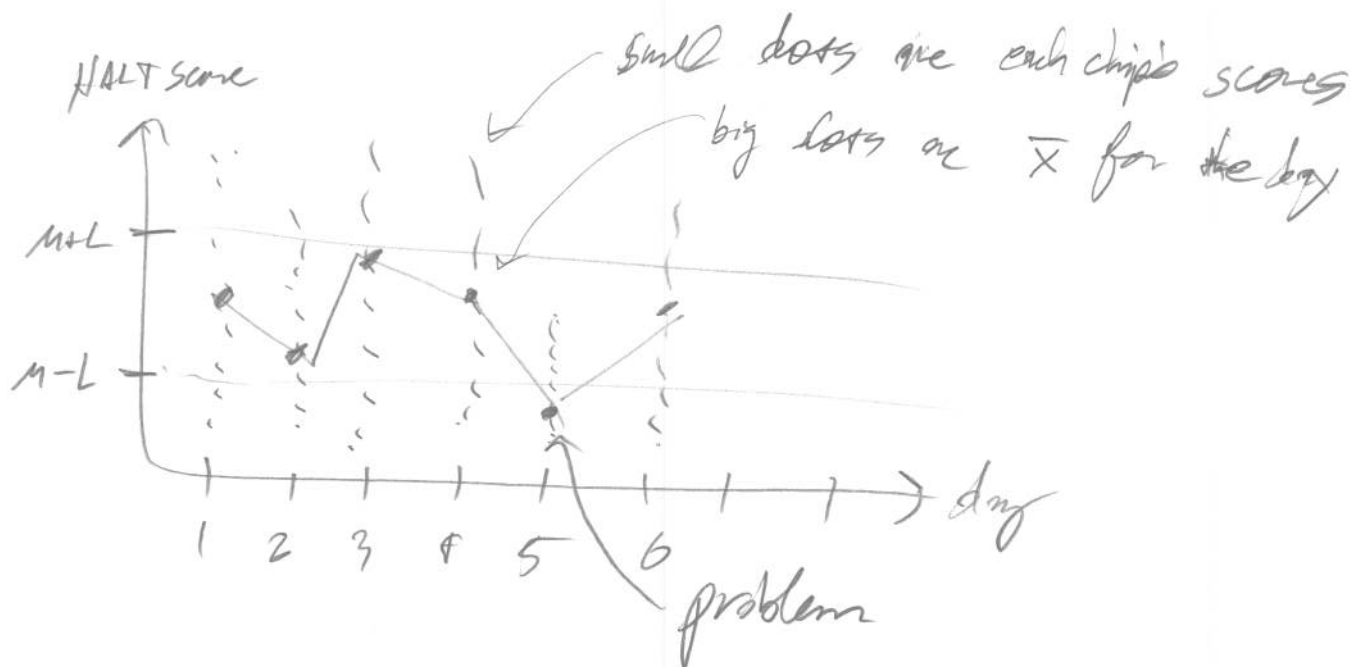 HALT score
small dots are each chip's scores
big dots are X̅ for the day
M+L
M-L
1 2 3 4 5 6
day
problem